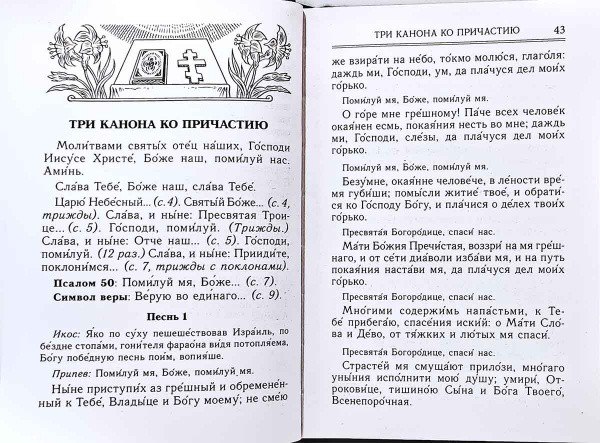 ТРИ КАНОНА КО ПРИЧАСТИЮ
Моли́твами святы́х оте́ц на́ших, Го́споди
Иису́се Христе́, Бо́же наш, поми́луй нас.
Ами́нь.
Сла́ва Тебе́, Бо́же наш, сла́ва Тебе́.
Царю́ Небе́сный... (с. 4). Святы́й Бо́же... (с. 4,
трижды). Сла́ва, и ны́не: Пресвята́я Трои-
це... (с. 5). Го́споди, поми́луй. (Трижды.)
Сла́ва, и ны́не: Отче наш... (с. 5). Го́споди,
поми́луй. (12 раз.) Сла́ва, и ны́не: Прииди́те,
поклони́мся... (с. 7, трижды с поклонами).
Псалом 50: Поми́луй мя, Бо́же... (с. 7).
Символ веры: Ве́рую во еди́наго... (с. 9).
Песнь 1
Икос: Я́ко по су́ху пешеше́ствовав Изра́иль, по
бе́здне стопа́ми, гони́теля фарао́на ви́дя потопля́ема,
Бо́гу побе́дную песнь пои́м, вопия́ше.
Припев: Поми́луй мя, Бо́же, поми́луй мя.
Ны́не приступи́х аз гре́шный и обремене́н-
ный к Тебе́, Влады́це и Бо́гу моему́; не сме́ю
ТРИ КАНОНА КО ПРИЧАСТИЮ 43
же взира́ти на не́бо, то́кмо молю́ся, глаго́ля:
даждь ми, Го́споди, ум, да пла́чуся дел мои́х
го́рько.
Поми́луй мя, Бо́же, поми́луй мя.
О го́ре мне гре́шному! Па́че всех челове́к
окая́нен есмь, покая́ния несть во мне; даждь
ми, Го́споди, сле́зы, да пла́чуся дел мои́х
го́рько.
Поми́луй мя, Бо́же, поми́луй мя.
Безу́мне, окая́нне челове́че, в ле́ности вре́-
мя гу́биши; помы́сли житие́ твое́, и обрати́-
ся ко Го́споду Бо́гу, и пла́чися о де́лех твои́х
го́рько.
Пресвята́я Богоро́дице, спаси́ нас.
Ма́ти Бо́жия Пречи́стая, воззри́ на мя гре́ш-
наго, и от се́ти диа́воли изба́ви мя, и на путь
покая́ния наста́ви мя, да пла́чуся дел мои́х
го́рько.
Пресвята́я Богоро́дице, спаси́ нас.
Мно́гими содержи́мь напа́стьми, к Те-
бе́ прибега́ю, спасе́ния иски́й: о Ма́ти Сло́-
ва и Де́во, от тя́жких и лю́тых мя спаси́.
Пресвята́я Богоро́дице, спаси́ нас.
Страсте́й мя смуща́ют прило́зи, мно́гаго
уны́ния испо́лнити мою́ ду́шу; умири́, От-
рокови́це, тишино́ю Сы́на и Бо́га Твоего́,
Всенепоро́чная.